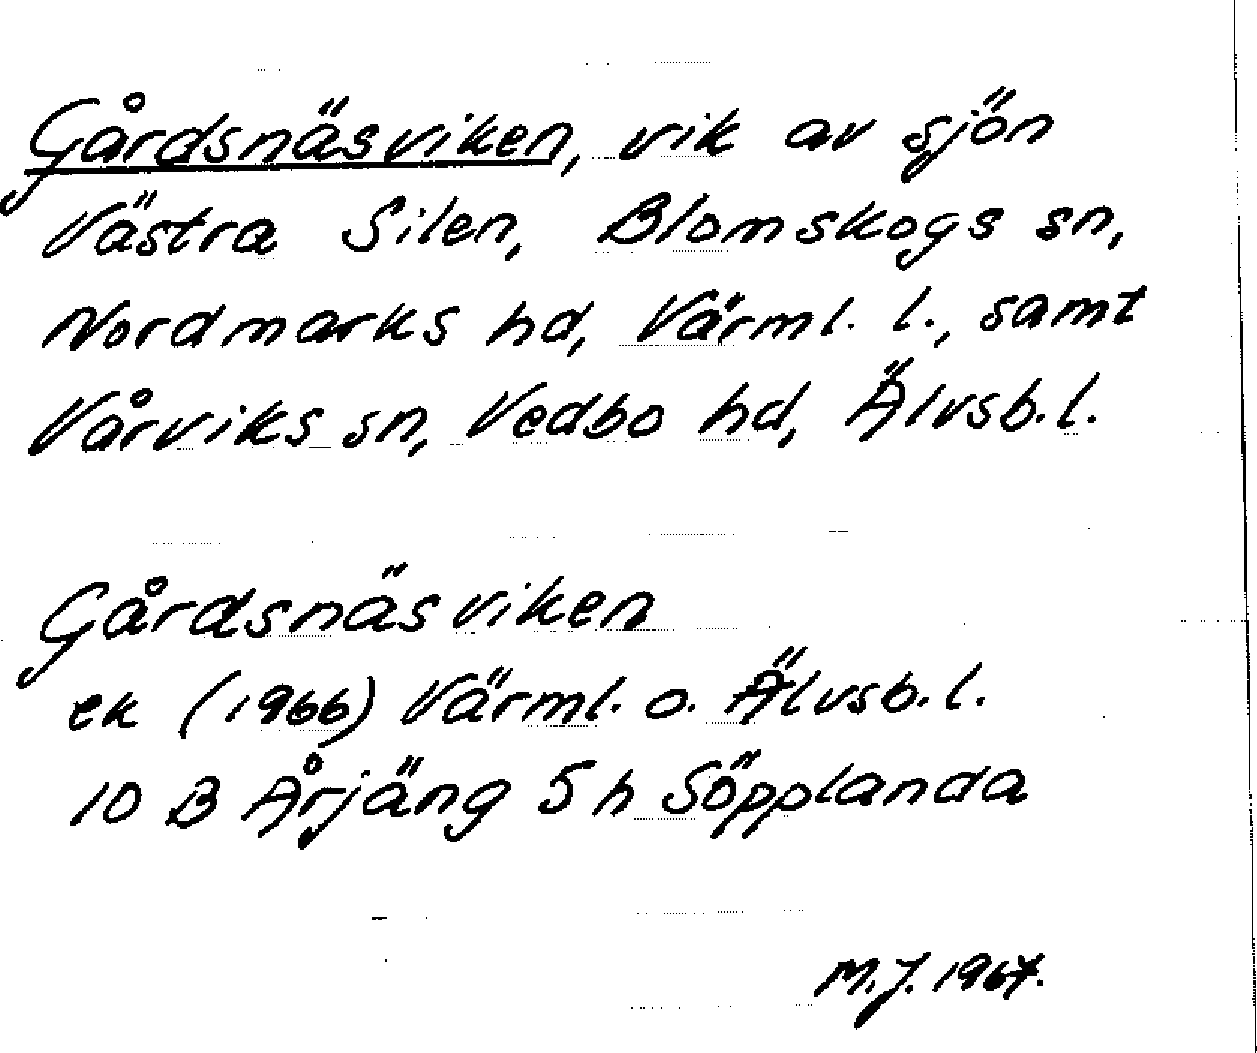 Gårdsnäsviken, vik av sjön
Västra Silen, Blomskogs sn,
Nordmarks hd, Värml. l., samt
Vårviks sn, Vedbo hd, Älvsb.l.
Gårdsnäsviken
ek (1966) Värml. o. Älvsb.l.
10 B Årjäng 5 h Söpplanda
M.J. 1967.